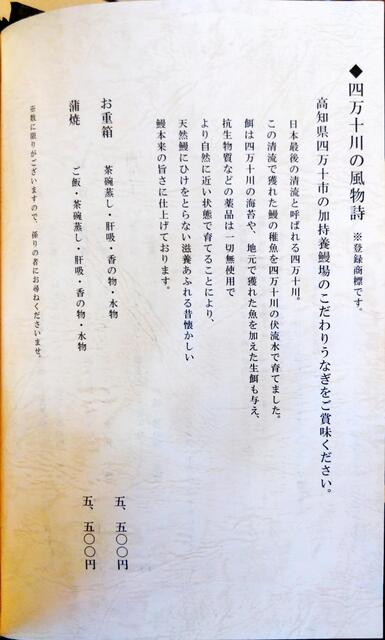 ◆四万十川の風物詩 ※登録商標です。
高知県四万十市の加持養鰻場のこだわりうなぎをご賞味ください。
日本最後の清流と呼ばれる四万十川。
この清流で獲れた鰻の稚魚を四万十川の伏流水で育てました。
餌は四万十川の海苔や、地元で獲れた魚を加えた生餌も与え、
抗生物質などの薬品は一切無使用で
より自然に近い状態で育てることにより、
天然鰻にひけをとらない滋養あふれる昔懐かしい
鰻本来の旨さに仕上げております。
お重箱 茶碗蒸し・肝吸・香の物・水物 五、五〇〇円
蒲焼 ご飯・茶碗蒸し・肝吸・香の物・水物 五、五〇〇円
※数に限りがございますので、係りの者にお尋ねくださいませ。